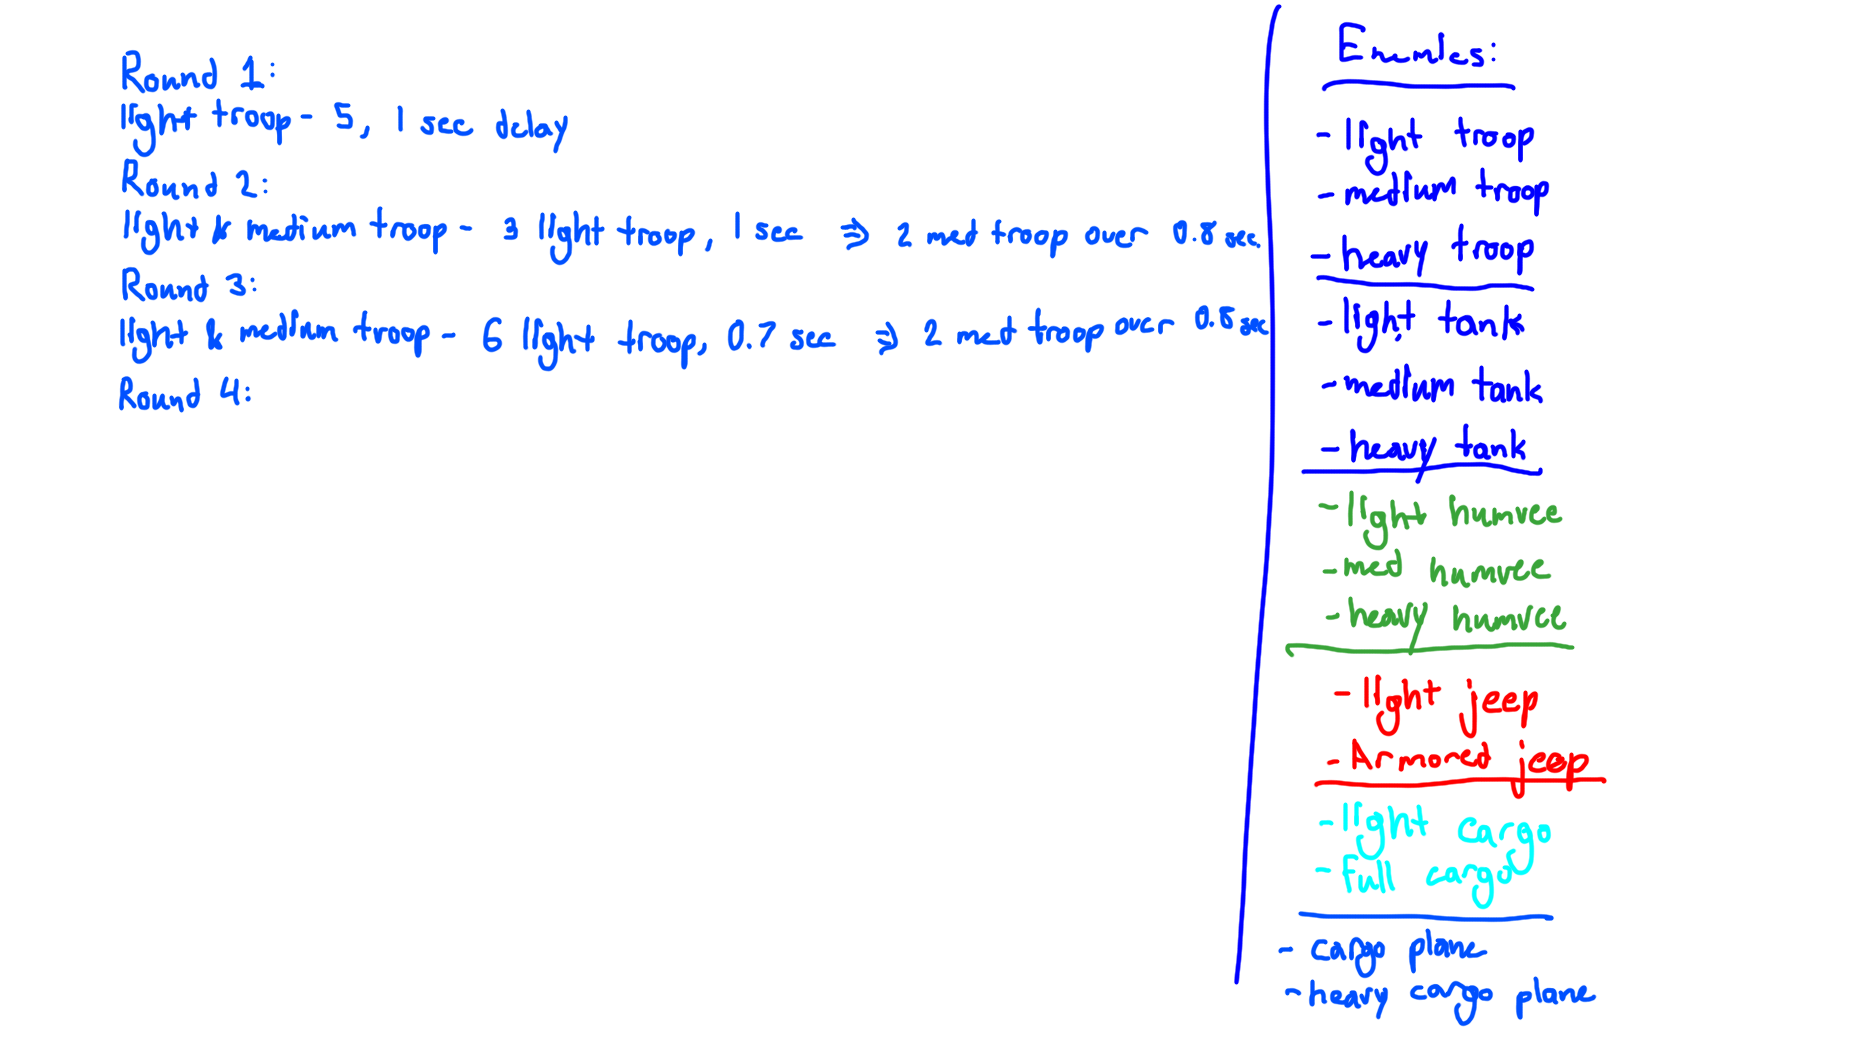 Round 1:
light troop - 5, 1 sec delay
Round 2:
light & medium troop - 3 light troop, 1 sec ⇒ 2 med troop over 0.8 sec.
Round 3:
light & medium troop - 6 light troop, 0.7 sec ⇒ 2 med troop over 0.8 sec
Round 4:
Enemies:
- light troop
- medium troop
- heavy troop
- light tank
- medium tank
- heavy tank
- light humvee
- med humvee
- heavy humvee
- light jeep
- Armored jeep
- light cargo
- full cargo
- cargo plane
- heavy cargo plane